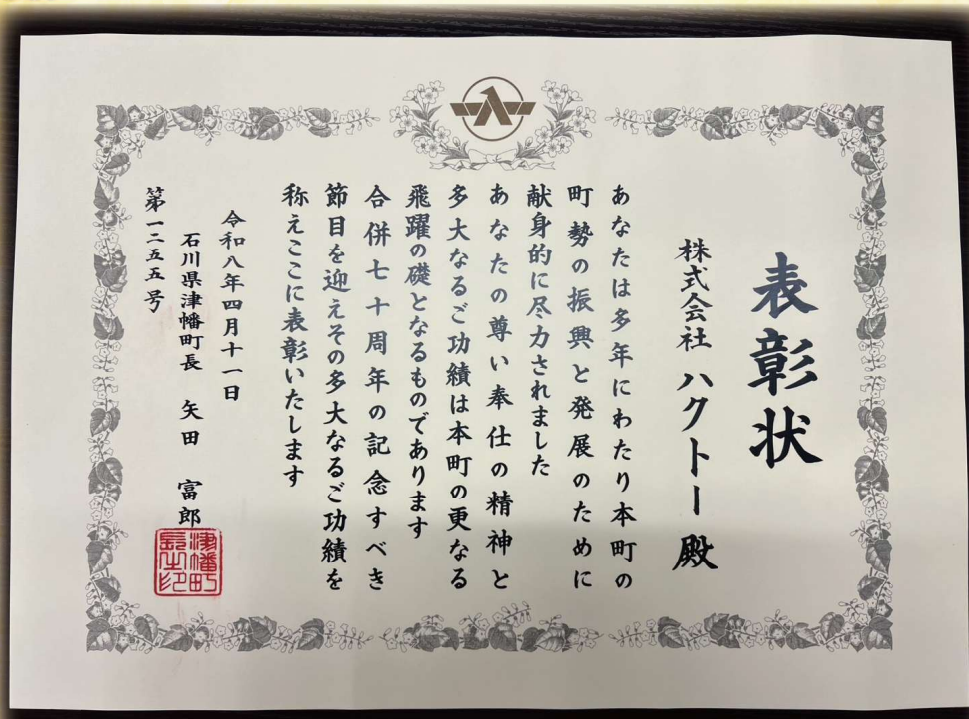 表彰状
株式会社 ハクトー 殿
あなたは多年にわたり本町の
町勢の振興と発展のために
献身的に尽力されました
あなたの尊い奉仕の精神と
多大なるご功績は本町の更なる
飛躍の礎となるものであります
合併七十周年の記念すべき
節目を迎えその多大なるご功績を
称えここに表彰いたします
令和八年四月十一日
石川県津幡町長 矢田 富郎
第一二五五号
津幡町
長之印